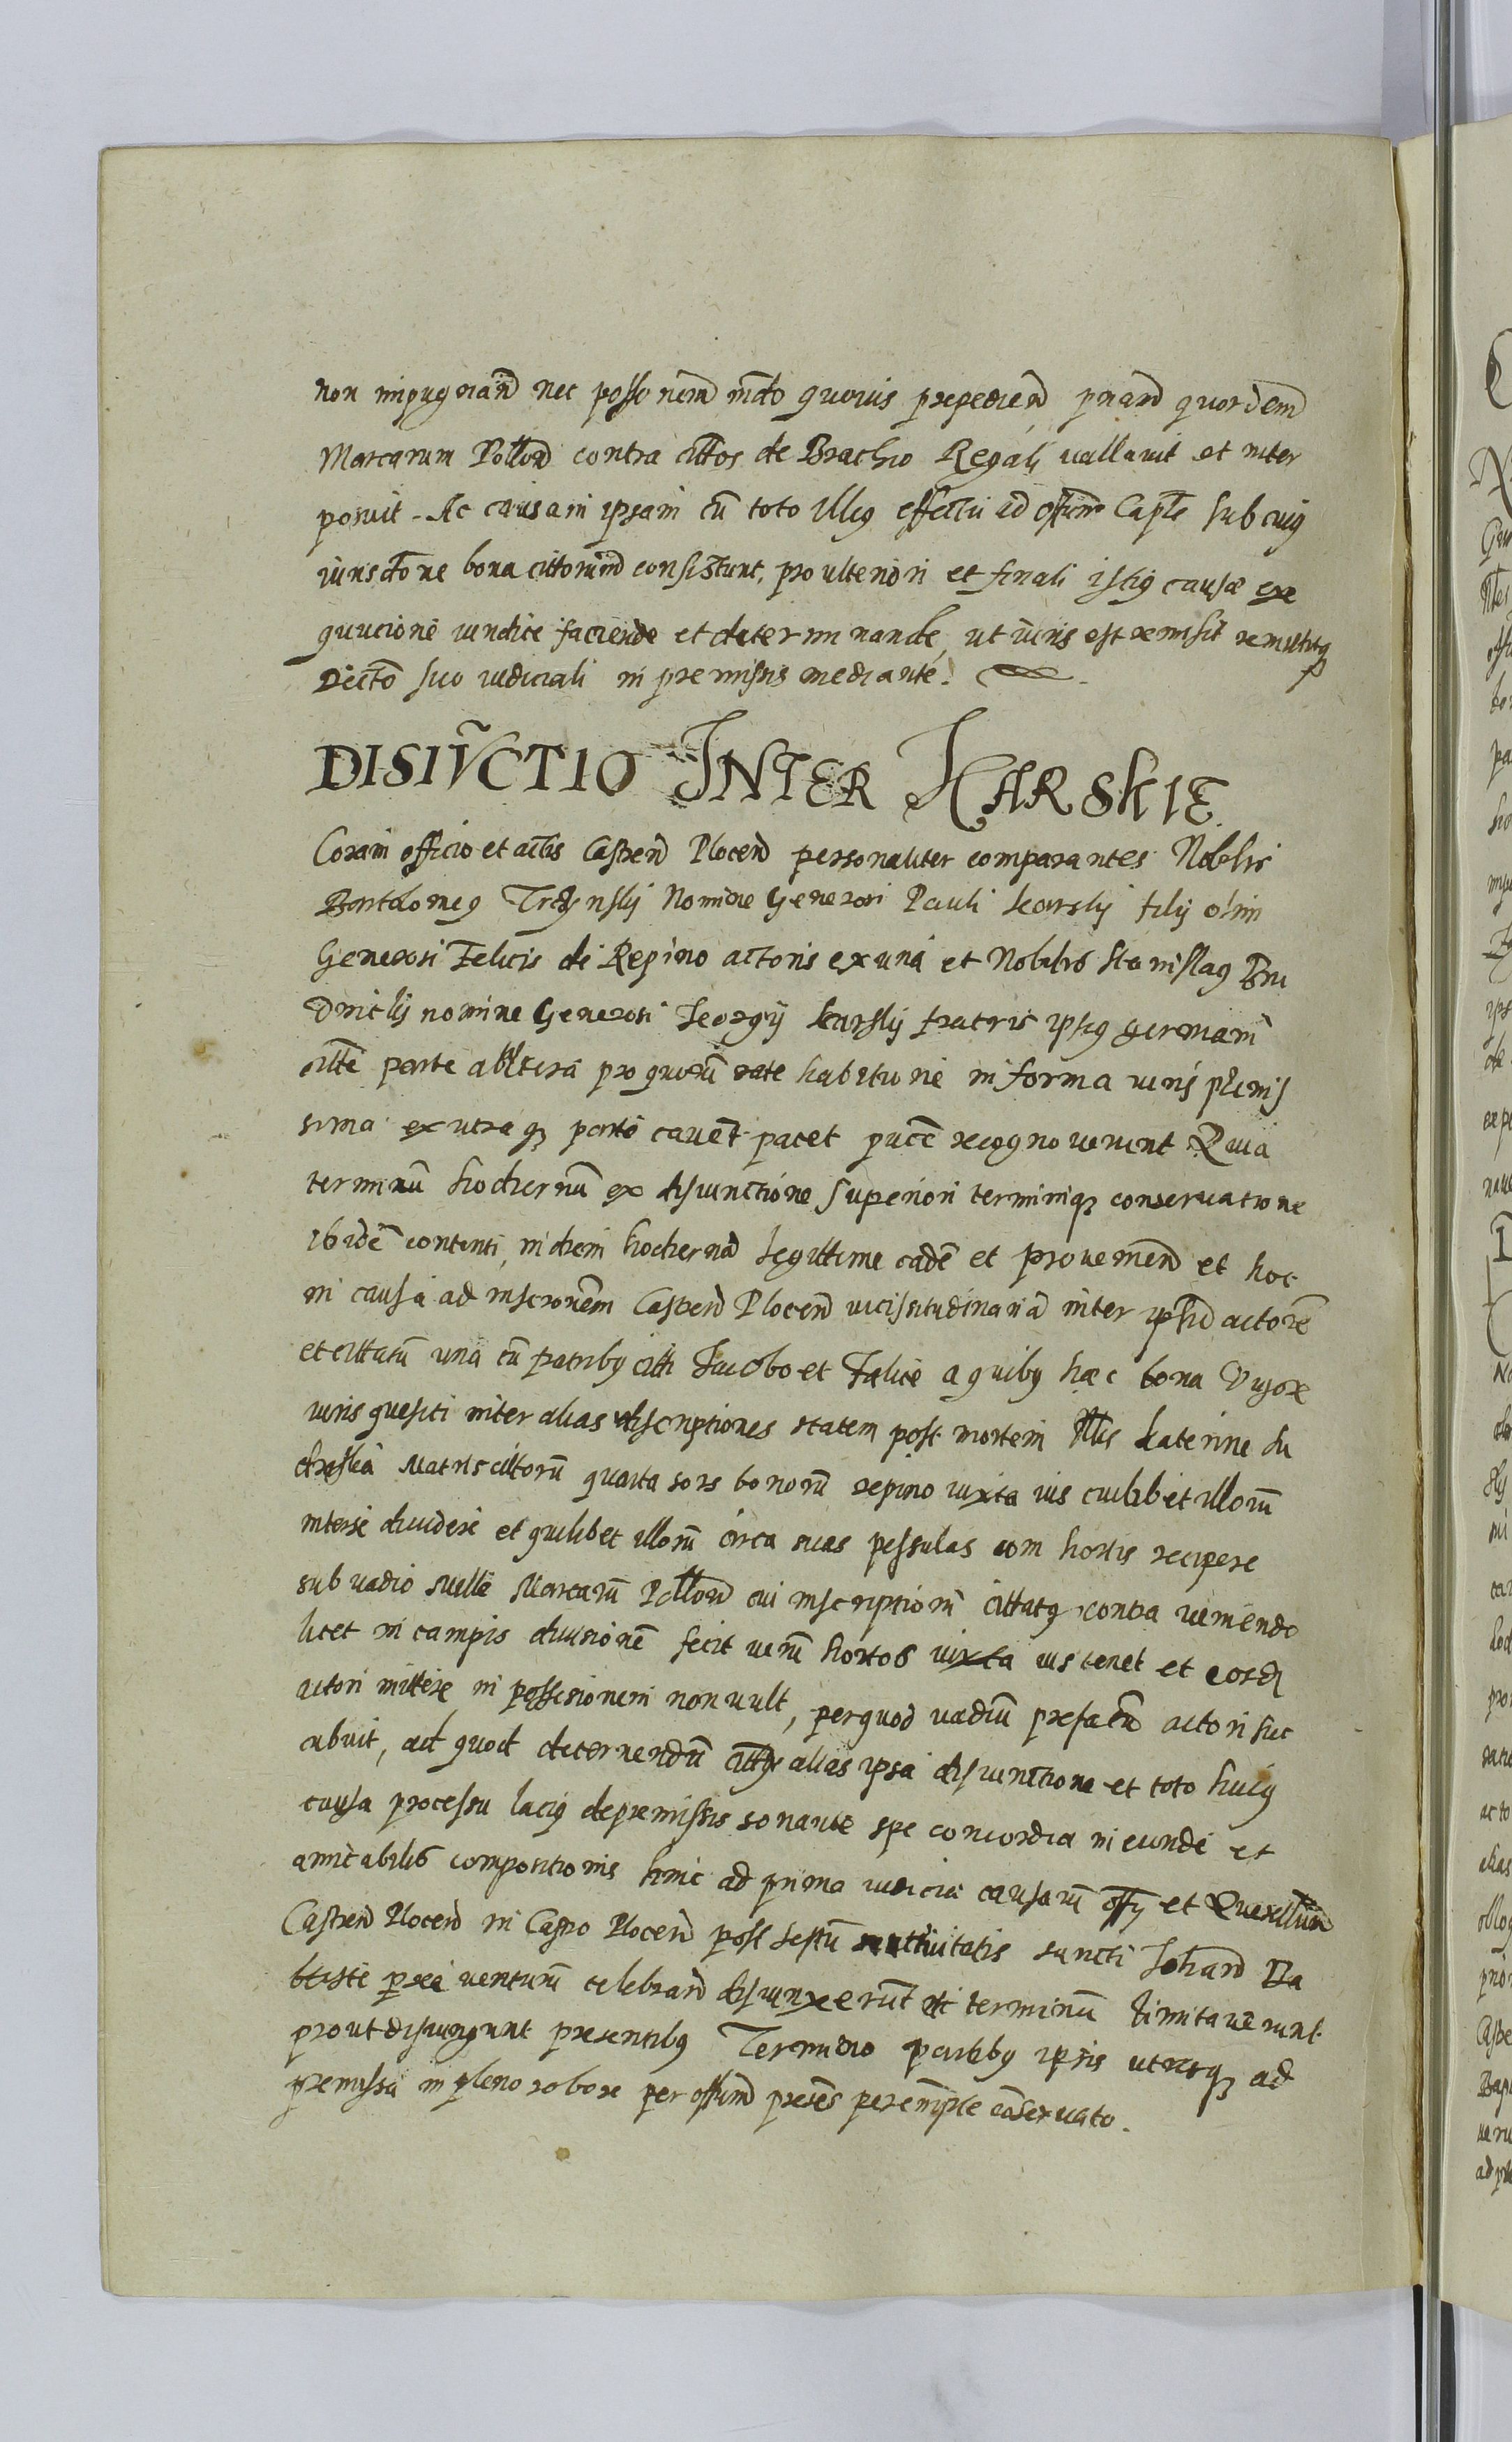 non impugnand nec possonem mdo quovis prepediend pnard quordem
Marcarum Pollon contra cittos de Brachio Regali vallavit et inter
posuit. Ac causam ipsam cū toto illiq effectu ad officm Caple sub cuiq
iurisdone bona cittorum consistunt, pro ulteriori et finali istiq causæ exe
quucione iuridice faciende et determinande, ut iuris est remisit remittitq
Decto suo iudiciali in premissis mediante.
DISIŨCTIO INTER KARSKIE
Coram officio et actis Castren Plocen personaliter comparantes Nobilis
Bartolomeq nomine Generosi Pauli Karskij filij olim
Generosi Felicis de Repino actoris ex una et Nobilis Stanislaq Bru
dnickij nomine Generosi Georgij Karskij fratris ipsiq germani
citte parte ab altera pro quorū rate habitione in forma iuris plenis
sima ex utraq parte cavent patet pucē recognoverunt Quia
terminū hodiernū ex disiunctione superiori terminiq conservatione
ibidē contenti, in diem hodiernā legittime cadē et provenien et hoc
in causa ad inscronēm Castren Plocen vicissitudinariā inter ipsū actorē
et cittatū una cū fratribq citti Jacobo et Felice a quibq hæc bona
iuris quesiti inter alias discriptiones statem post mortem Nlis Katerine Su
Matris cittorū quarta sors bonorū repino iuxta ius cuilibet illorū
inter se dividere et quilibet illorū circa suas pessulas com hortis recipere
sub vadio mille Marcarū Pollon cui inscriptioni cittatq contra veniendo
licet in campis divisionē fecit verū hortos iuxta ius tenet et eosd
actori mittere in possesionem non vult, per quod vadiū prefatū actori suc
cubuit, ad quod decernendū cittq alias ipsa disiunctione et toto huiq
causa processu laciq de premissis sonante spe concordia in eunde et
amicabilis compositionis hinc ad prima iudicia causarū offy et Querellarū
Castren Plocen in Castro Plocen post festū nattivitatis sancti Johan Ba
btiste proxi venturū celebrand disiunxerūt et terminū limitaverunt
prout disiungunt presentibq Termino partibq ipsis utrisq ad
premissa in pleno robore per offim presēs perempte cōservato.